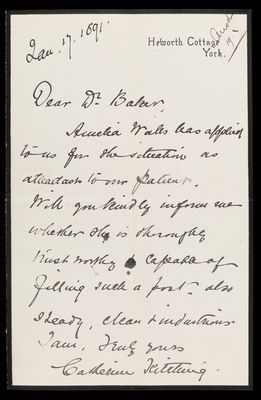 Jan. 17. 1891.
Heworth Cottage
York.
Dear Dr. Baker
Amelia Wales has applied
to us for the situation as
attendant to our patient.
Will you kindly inform me
whether she is thoroughly
trustworthy & capable of
filling such a post. also
steady, clean & industrious
I am, truly yours
Catherine